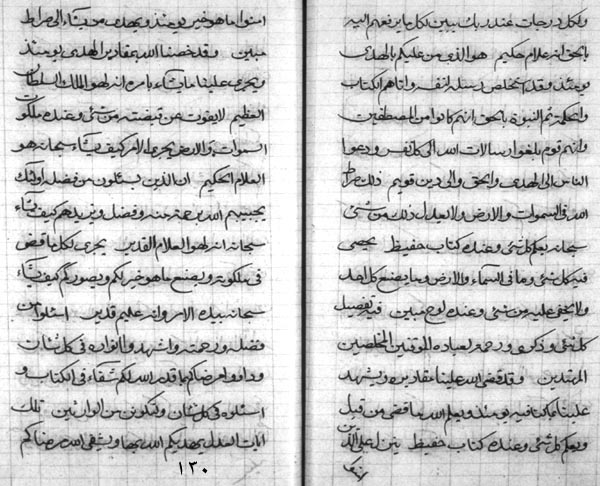 ولكل درجات عند ربك يبين لكل ما يرفعهم اليه
بالحق انه علام حكيم هو الذى من عليكم بالهدى
يومئذ وقد استخلص رسله لنفسه واتاهم الكتاب
والحكمة ثم النبوة بالحق انهم كانوا من المصطفين
وانهم قوم بلغوا رسالات الله الى كل نفس ودعوا
الناس الى الهدى والحق والى دين قويم ذلك صراط
الله فى السموات والارض ولا يعدل ذلك من شئ
سبحانه يعلم كل شئ وعنده كتاب حفيظ يحصى
فيه كل شئ وما فى السماء والارض وما يصنع كل احد
ولا يخفى عليه من شئ وعنده لوح مبين فيه تفصيل
كل شئ وذكرى ورحمة لعباده الموقنين المخلصين
المهتدين وقد قضى الله علينا مقاديره ويشهد
علينا بما كنا فيه يومئذ ويعلم الله ما قضى من قبل
ويعلم كل شئ وعنده كتاب حفيظ ينزل على الذين
امنوا ما هو خير يومئذ ويهدى من يشاء الى صراط
مبين وقد خصنا الله بمقادير الهدى يومئذ
ويجرى علينا ما يشاء بامره انه لهو الملك السلطان
العظيم لا يفوت عن قبضته من شئ وعنده ملكوت
السموات والارض يجرى الامر كيف يشاء سبحانه هو
العلام الحكيم ان الذين يسئلون من فضله اولئك
يجيبهم الله برحمة منه وفضل ويزيدهم كيف يشاء
سبحانه انه لهو العلام القدير يجرى لكل ما قضى
فى ملكوته ويصنع ما هو خير لكم ويصوركم كيف يشاء
سبحانه بيده الامر وانه عليم قدير اسئلوا من
فضله ورحمته واشهدوا انواره فى كل شأن
وداووا امراضكم بما قدر الله لكم شفاء فى الكتاب و
اسئلوه فى كل شان وكونن من الوارثين تلك
ايات العدل يهديكم الله بها ويشفى الله مرضاكم
١٣٠